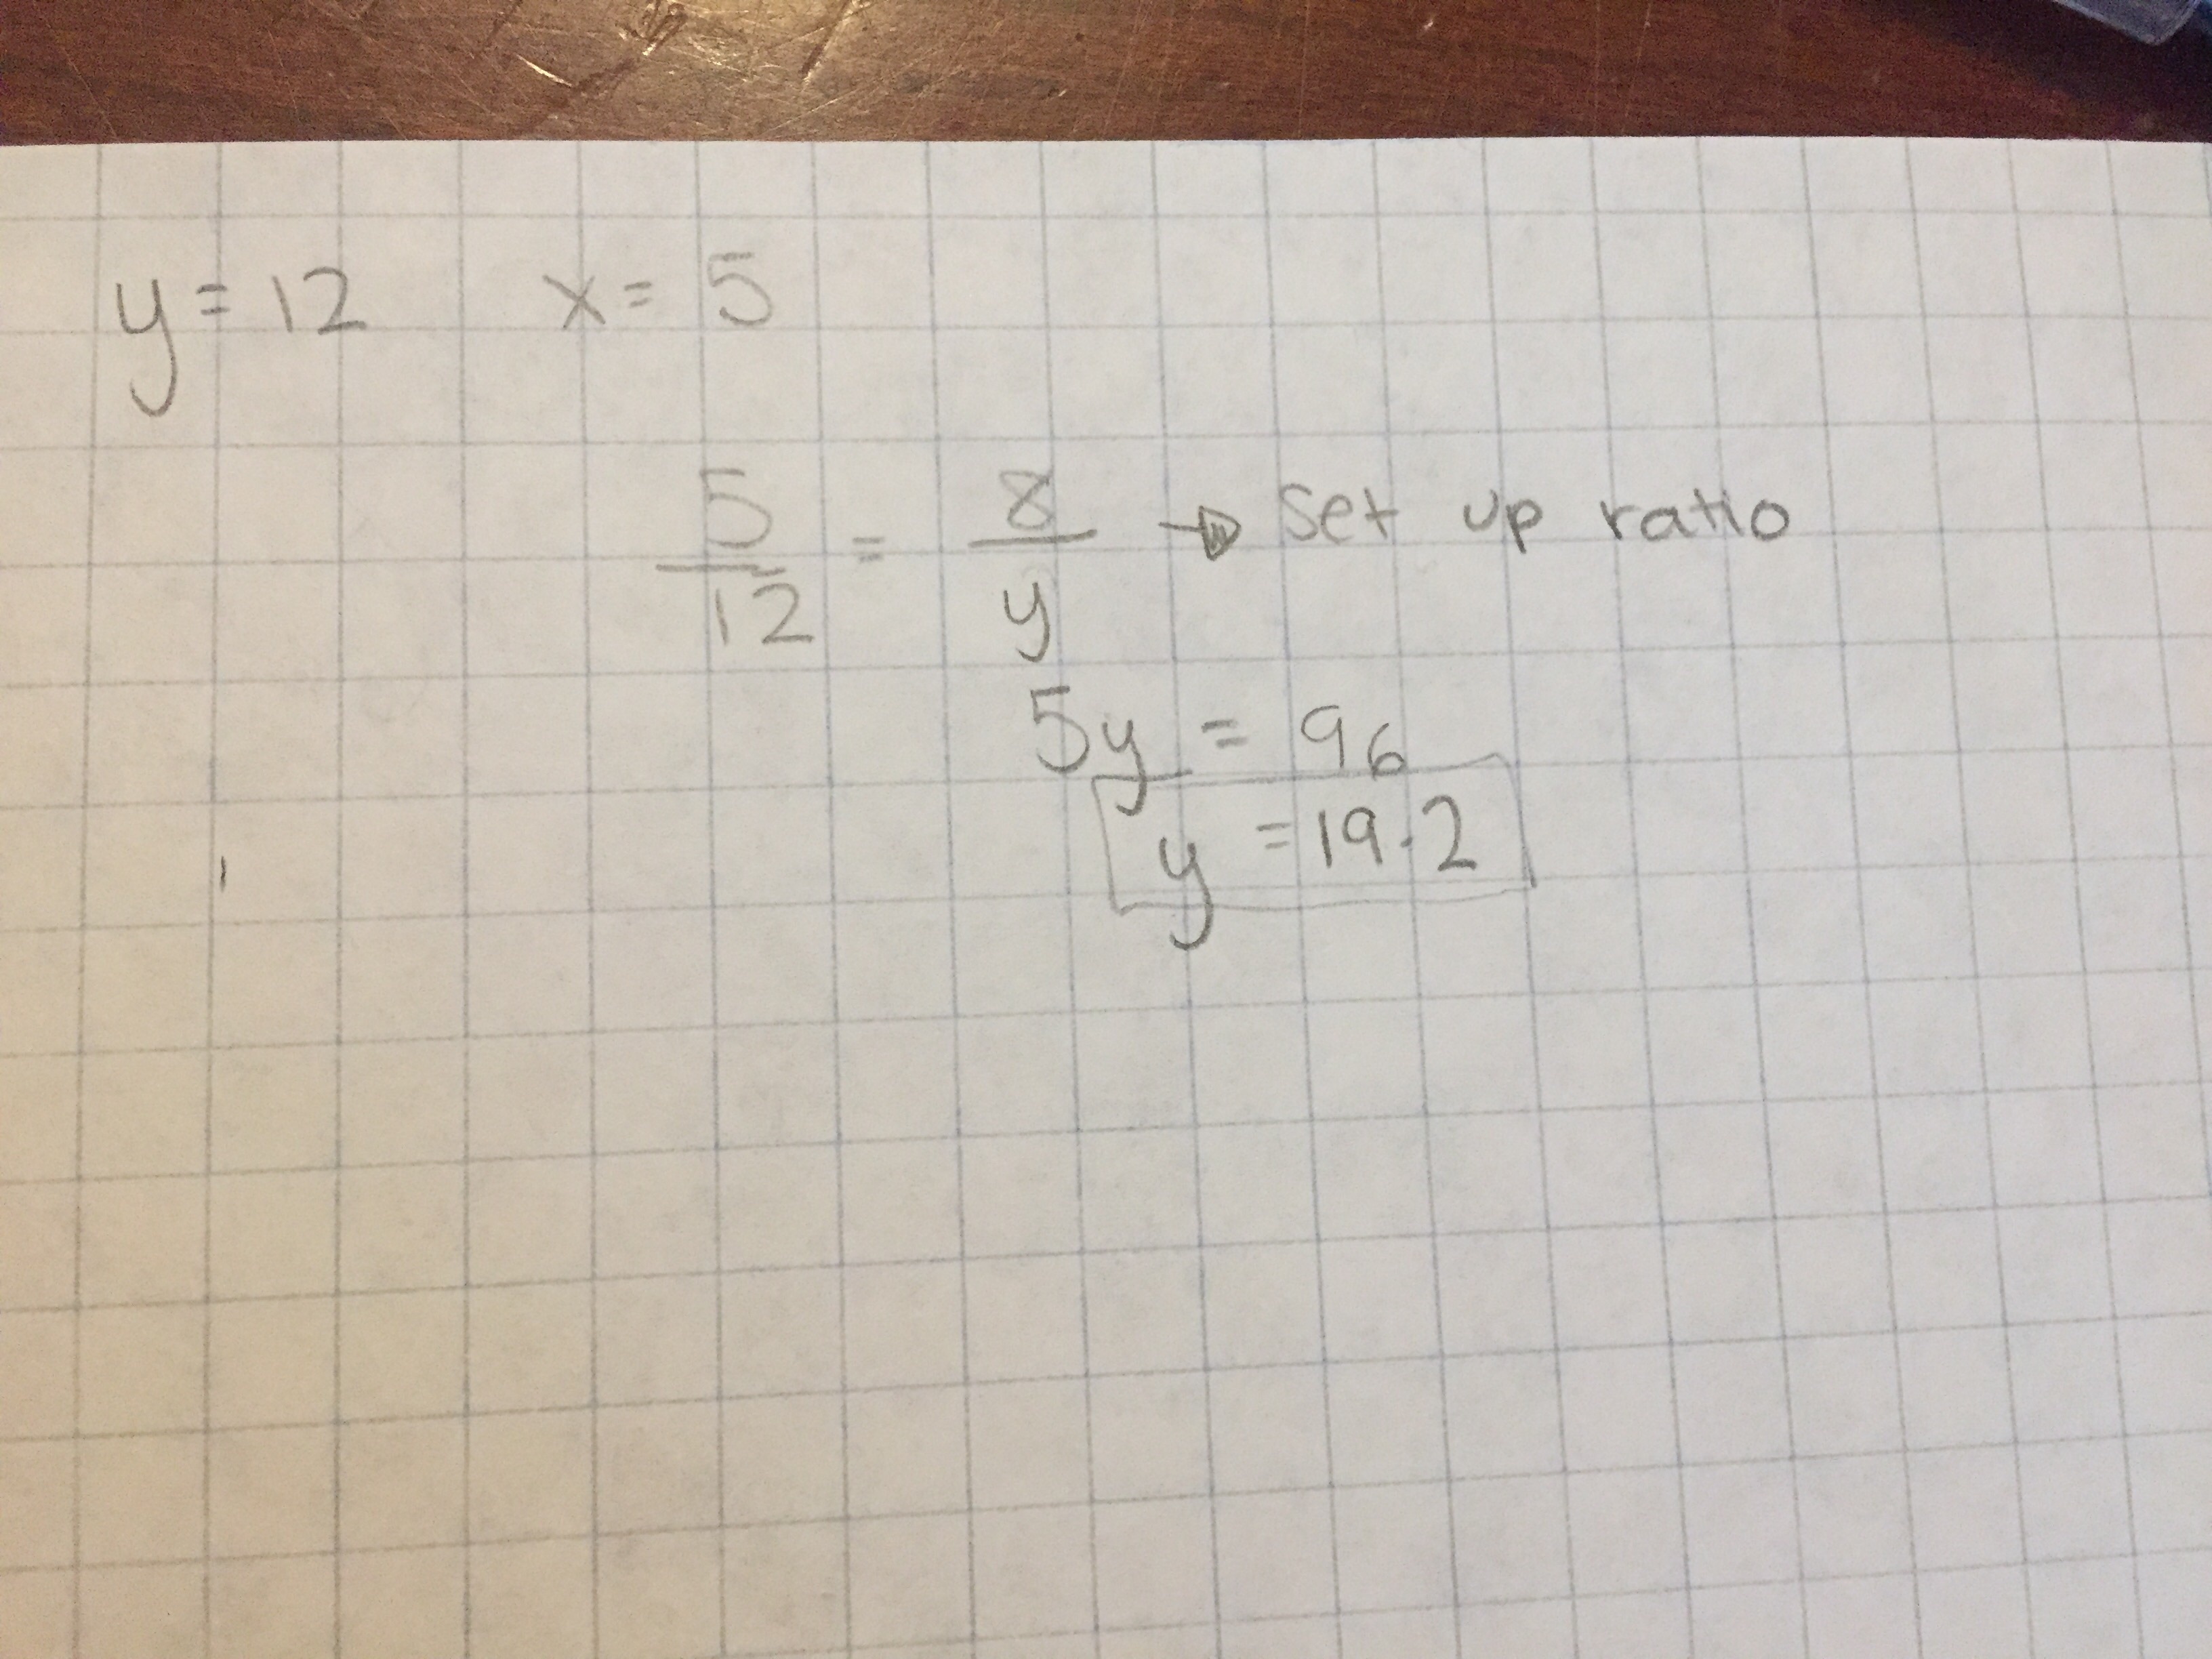 y = 12 x = 5
5/12 = 8/y → Set up ratio
5y = 96
y = 19.2